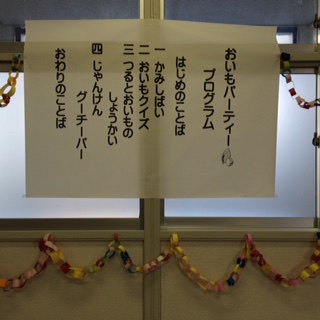 おいもパーティー
プログラム
はじめのことば
一 かみしばい
二 おいもクイズ
三 つるとおいもの
しょうかい
四 じゃんけん
グーチーパー
おわりのことば